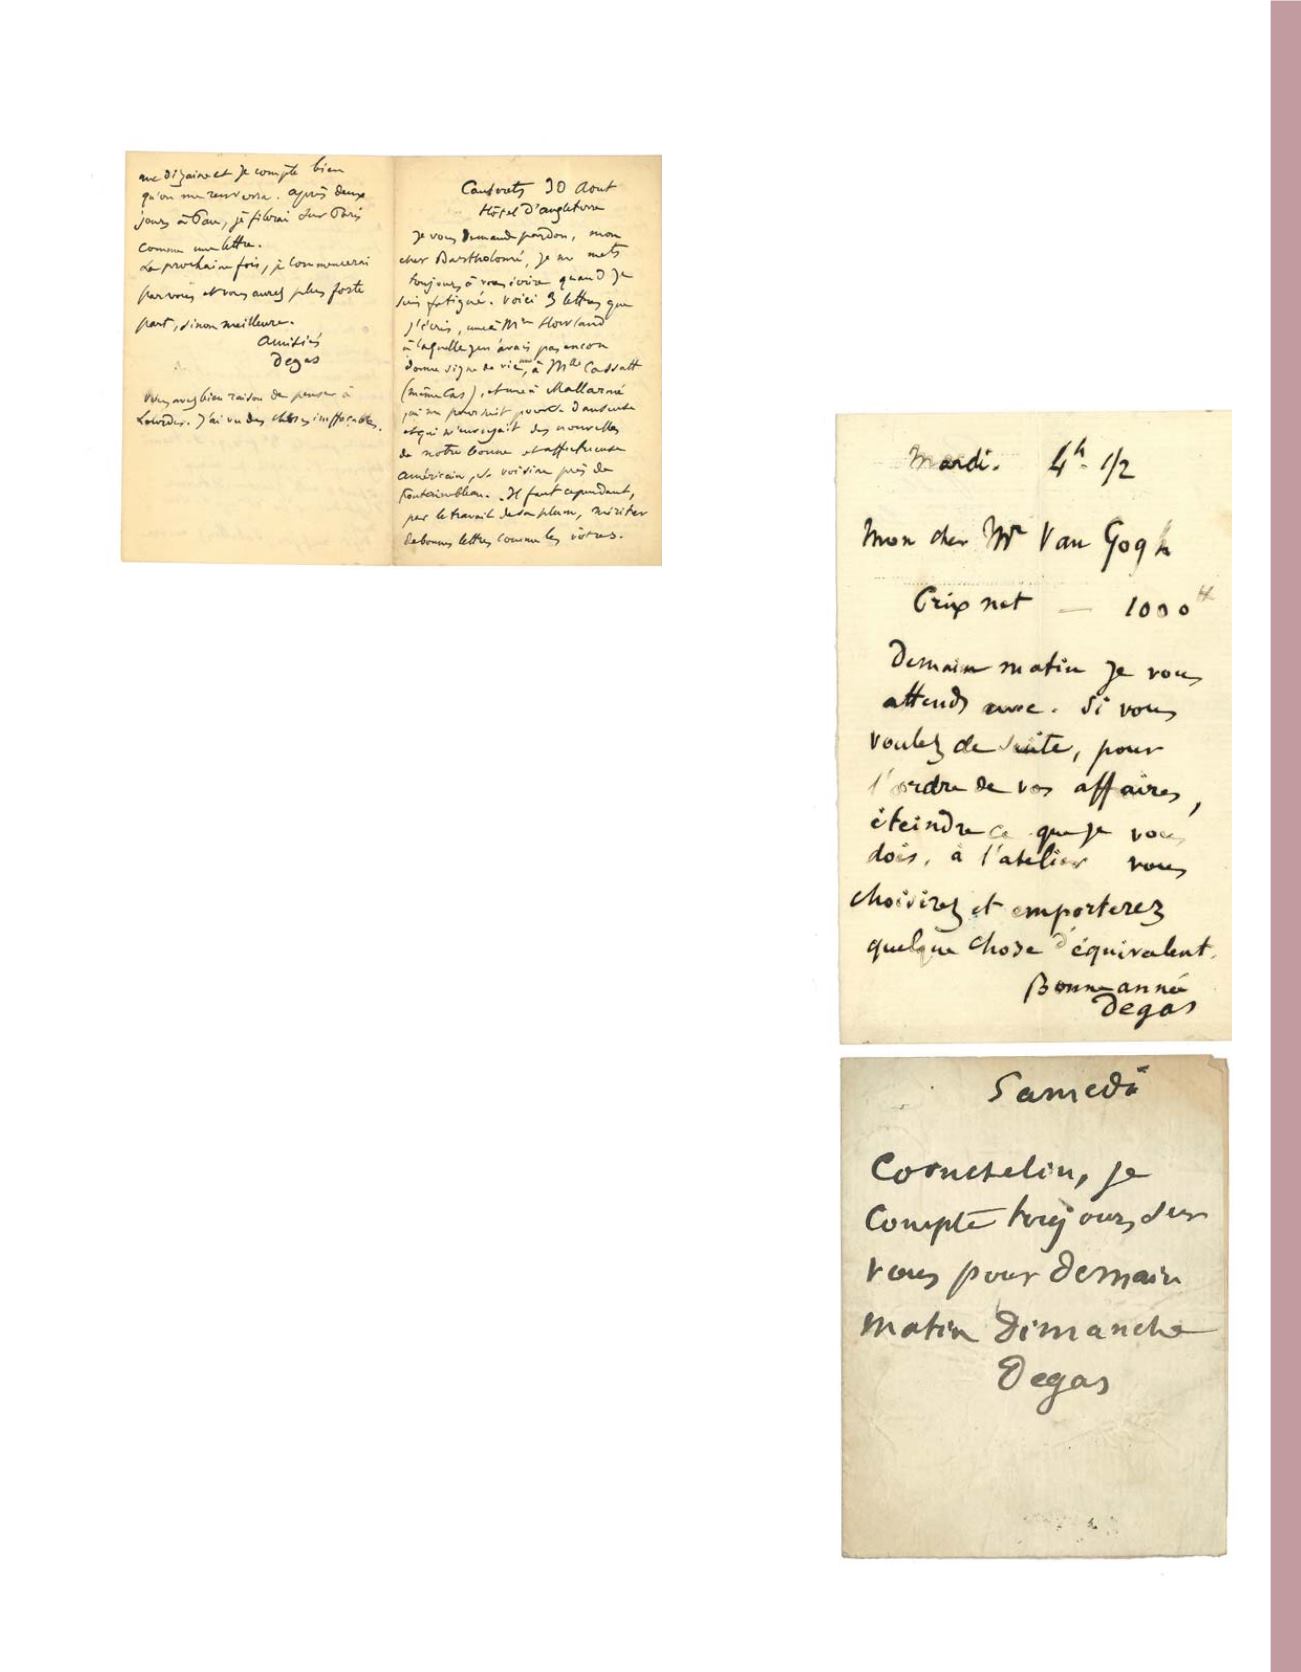 une dizaine et je compte bien
qu'on me renverra. Après deux
jours à Pau, je filerai sur Paris
comme une lettre.
La prochaine fois, je commencerai
par vous et vous aurez plus forte
part, sinon meilleure.
Amitiés
Degas
Vous avez bien raison de penser à
Lourdes. J'ai vu des choses ineffaçables.
Cauterets 30 Aout
Hôtel d'Angleterre
Je vous demande pardon, mon
cher Bartholomé, je me mets
toujours à vous écrire quand je
suis fatigué. Voici 3 lettres que
j'écris, une à Mme Howland
à laquelle je n'avais pas encore
donné signe de vie, à Mlle Cassatt
(même cas), et une à Mallarmé
qui me poursuit
et qui m'envoyait des nouvelles
de notre bonne et affectueuse
américaine, sa voisine près de
Fontainebleau. Il faut cependant,
par le travail de sa plume, mériter
de bonnes lettres comme les vôtres.
Mardi. 4h. 1/2
Mon cher Mr Van Gogh
Prix net — 1000 ff
Demain matin je vous
attends avec. Si vous
voulez de suite, pour
l'ordre de vos affaires,
éteindre ce que je vous
dois, à l'atelier vous
choisirez et emporterez
quelque chose d'équivalent.
Bonne année
Degas
Samedi
je
compte toujours sur
vous pour demain
matin Dimanche
Degas